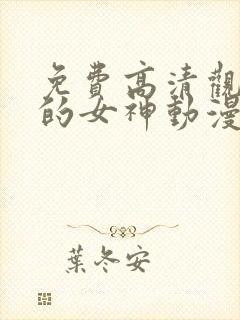 免費高清觀
的女神動漫
葉冬安